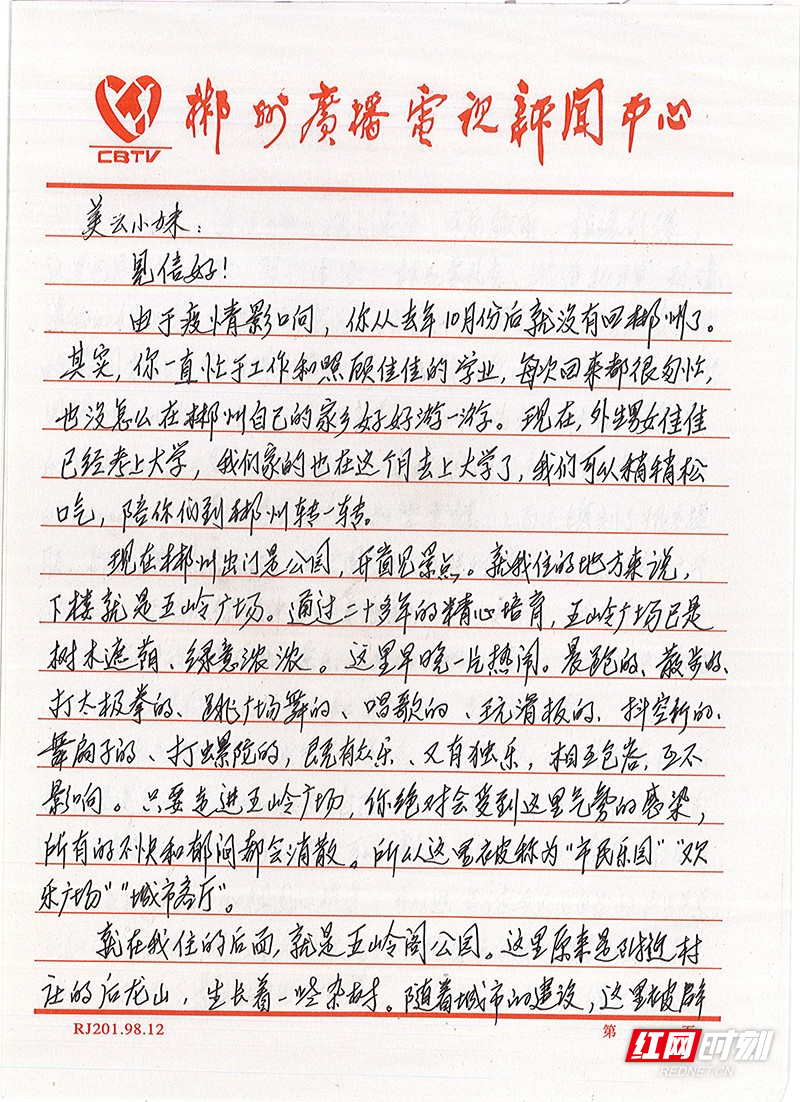 郴州廣播電視新聞中心
CBTV
美云小妹：
见信好！
由于疫情影响，你从去年10月份后就没有回郴州了。
其实，你一直忙于工作和照顾佳佳的学业，每次回来都很匆忙，
也没怎么在郴州自己的家乡好好游一游。现在，外甥女佳佳
已经考上大学，我们家的也在这个月去上大学了，我们可以稍稍松
口气，陪你们到郴州转一转。
现在郴州出门是公园，开窗见景点。就我住的地方来说，
下楼就是五岭广场。通过二十多年的精心培育，五岭广场已是
树木遮荫、绿意浓浓。这里早晚一片热闹。晨跑的、散步的、
打太极拳的、跳广场舞的、唱歌的、玩滑板的、抖空竹的、
舞扇子的、打陀螺的，既有众乐、又有独乐，相互包容，互不
影响。只要走进五岭广场，你绝对会受到这里气势的感染，
所有的不快和郁闷都会消散。所以这里被称为“市民乐园”“欢
乐广场”“城市客厅”。
就在我住的后面，就是五岭阁公园。这里原来是附近村
庄的后龙山，生长着一些杂树。随着城市的建设，这里被辟
RJ201.98.12
第 页
红网时刻
REDNET.CN